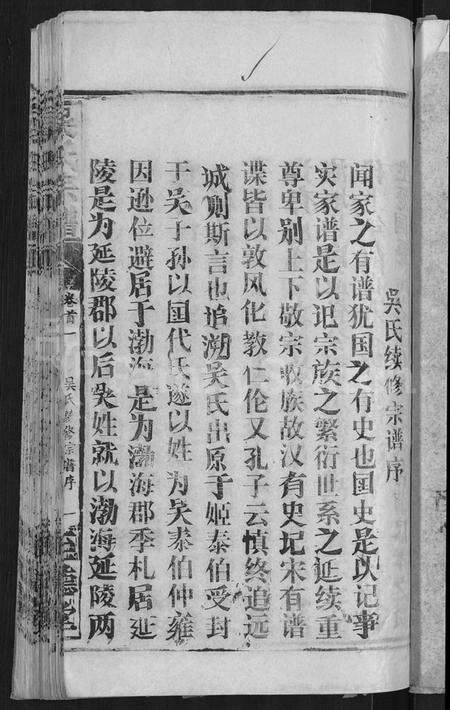 吳氏续修宗谱序
闻家之有谱犹国之有史也国史是以记事
实家谱是以记宗族之繁衍世系之延续重
尊卑别上下敬宗收族故汉有史记宋有谱
谍皆以敦风化教仁伦又孔子云慎终追远
诚则斯言也追溯吴氏出原于姬泰伯受封
于吴子孙以国代氏遂以姓为吴泰伯仲雍
因逊位避居于渤海是为渤海郡季札居延
陵是为延陵郡以后吴姓就以渤海延陵两
卷首
吴氏续修宗谱序
一
至德堂